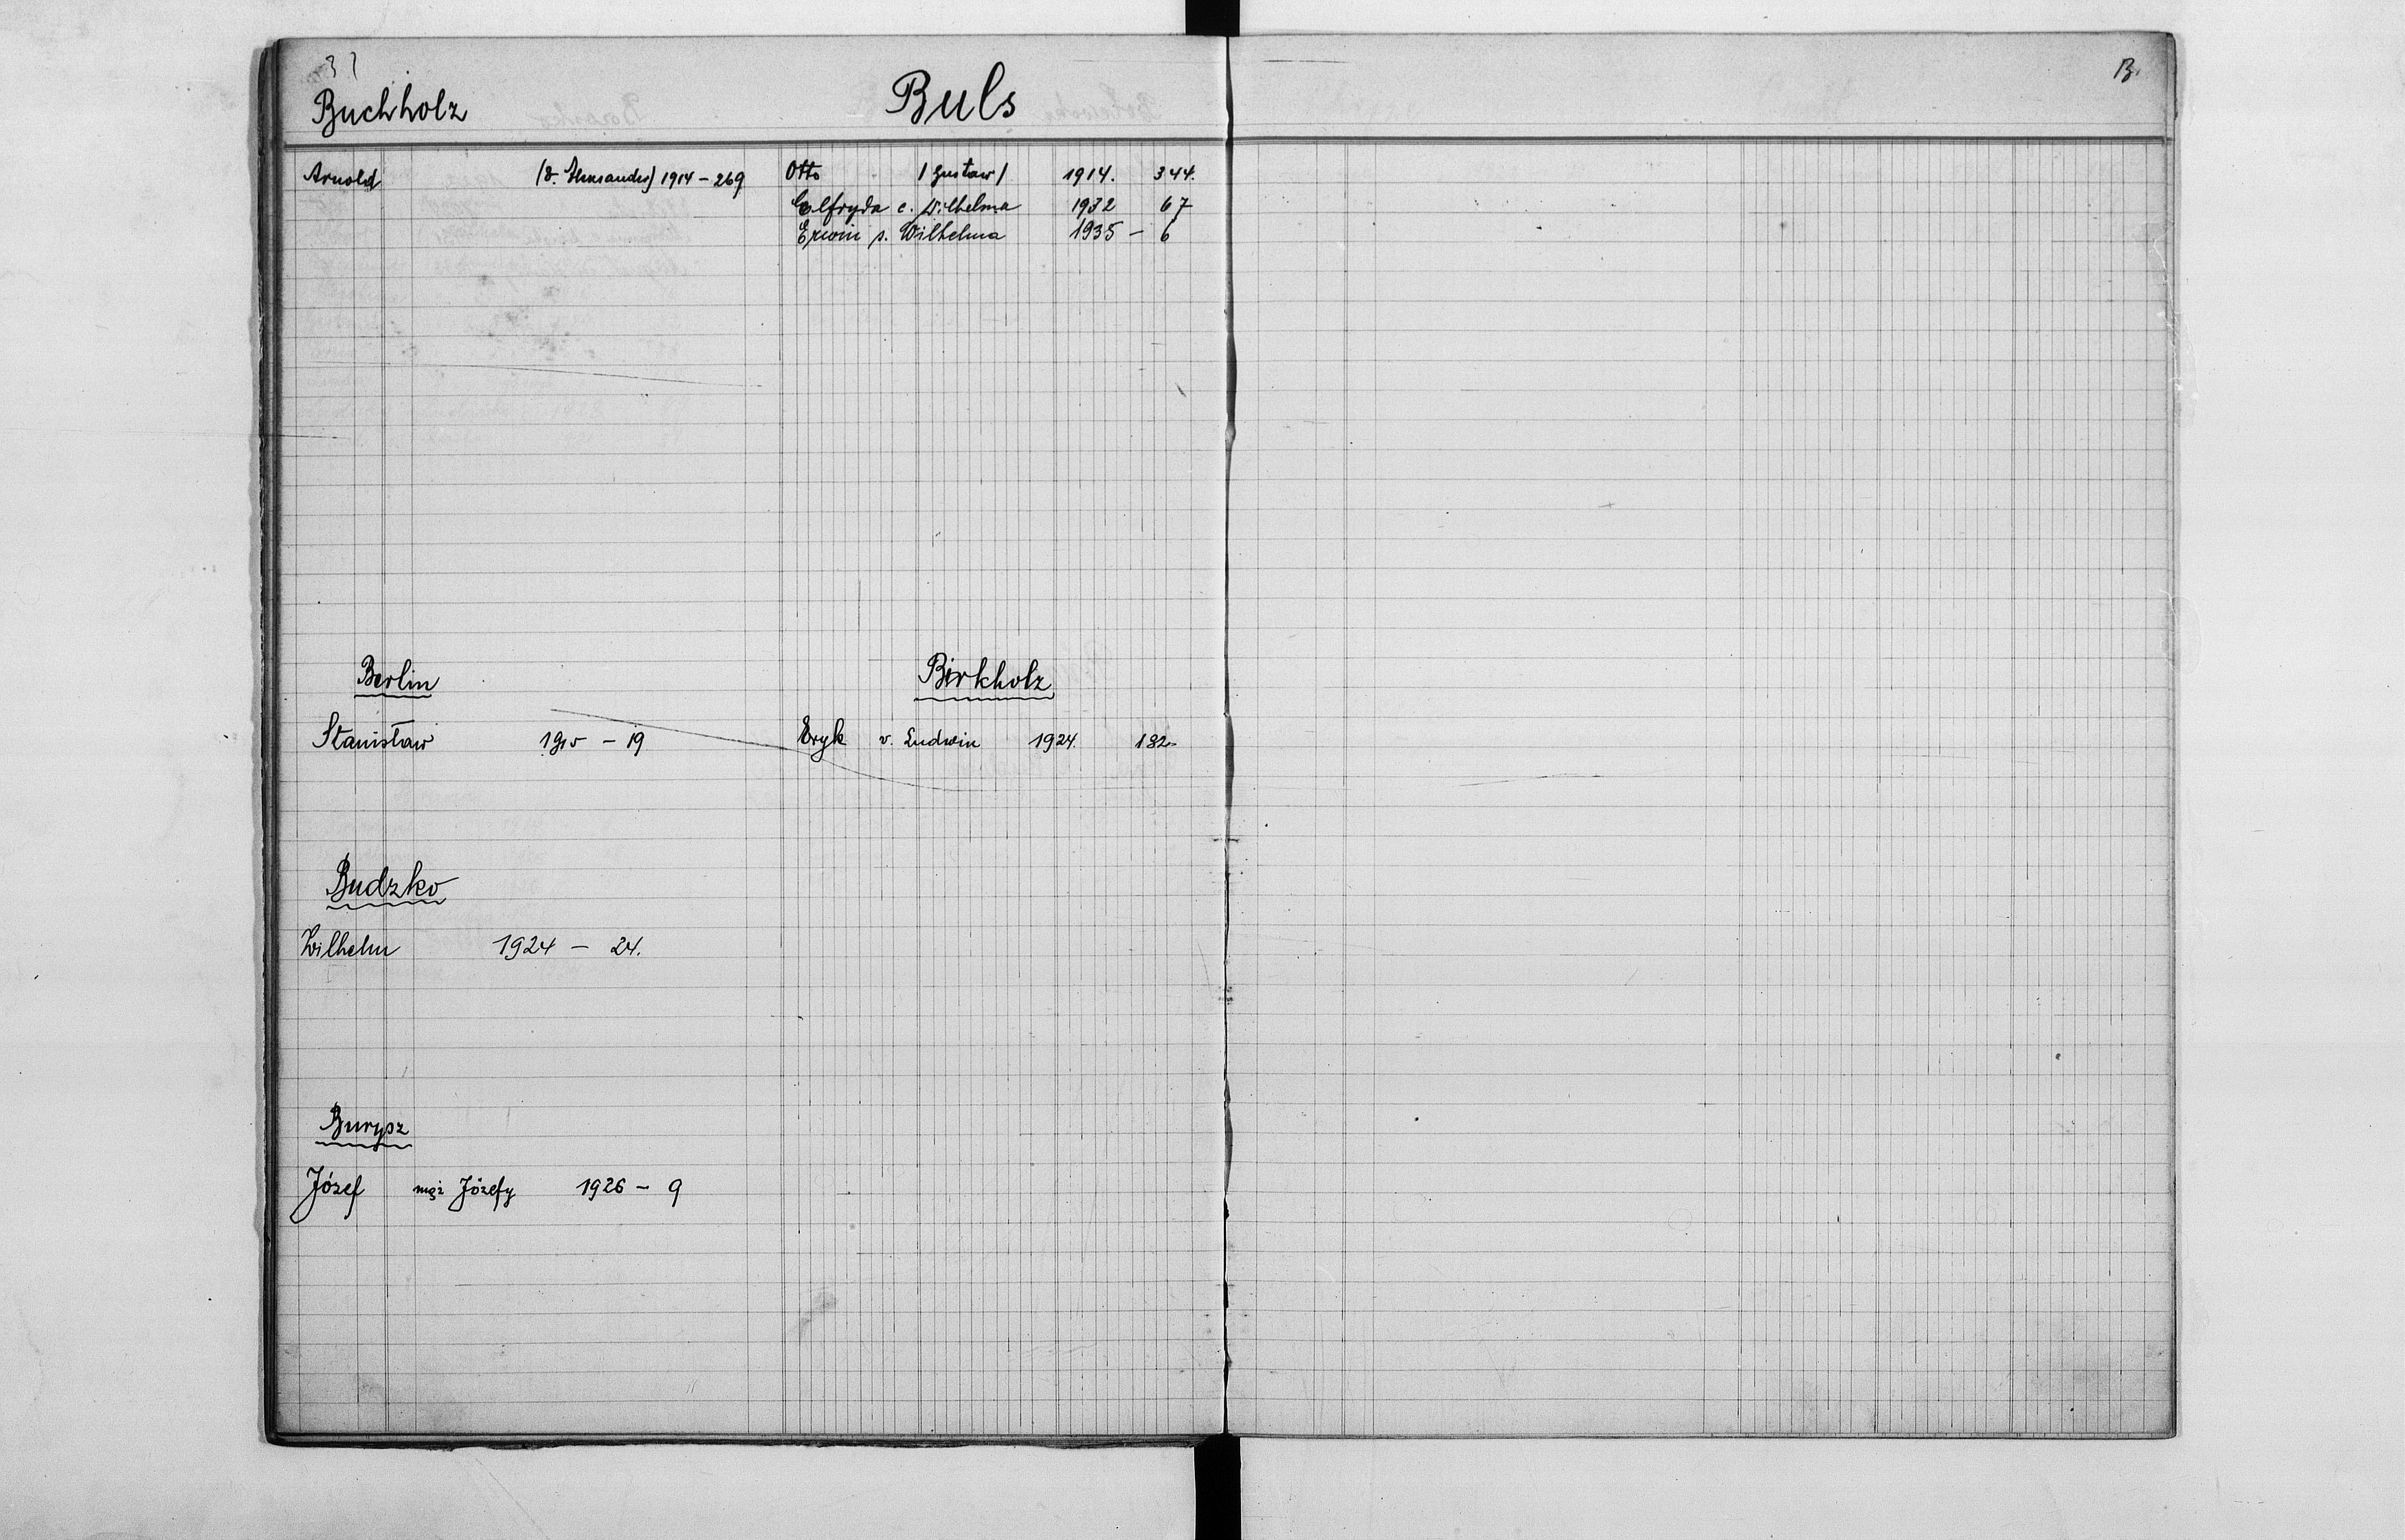 37
Buchholz
Arnold (v. Alexander) 1914 – 269
Berlin
Stanisław 1915 – 19
Budzko
Wilhelm 1924 – 24.
Burysz
Józef mąż Józefy 1926 – 9
Buls
Otto /Gustaw/ 1914. 344.
Elfryda c. Wilhelma 1932 67
Erwin s. Wilhelma 1935 – 6
Birkholz
Eryk v. Ludwin 1924. 132
B.